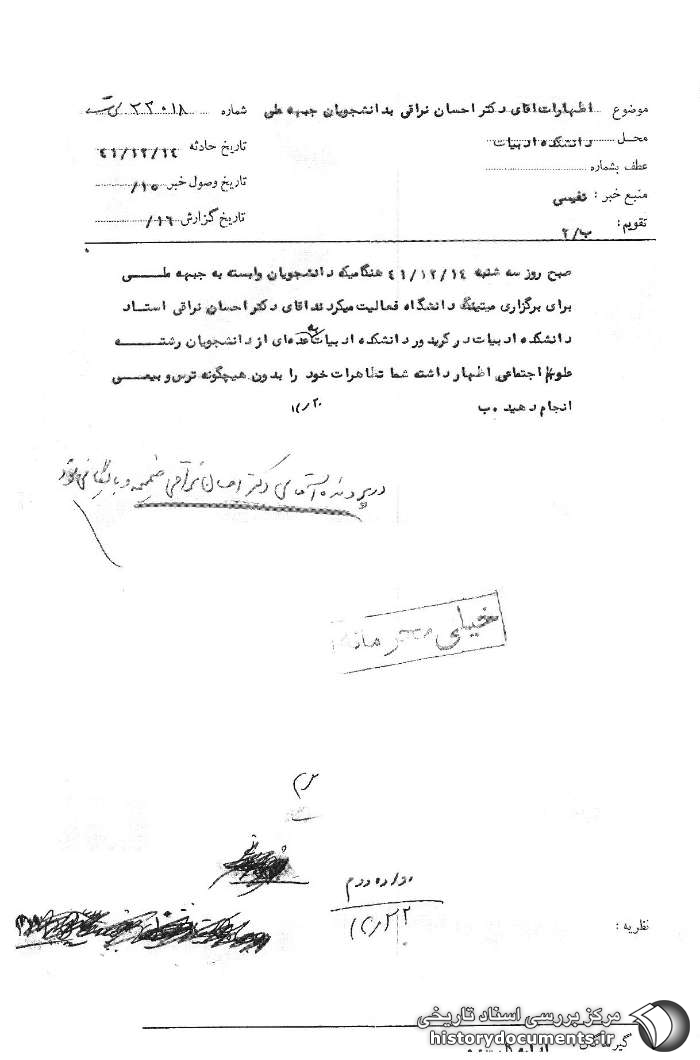 موضوع اظهارات اقای دکتر احسان نراقی بدانشجویان جبهه ملی شماره ۲۲۰۱۸
محل دانشکده ادبیات
تاریخ حادثه ۴۱/۱۲/۱۴
عطف بشماره
تاریخ وصول خبر ۱۵/
منبع خبر : نفیسی
تاریخ گزارش ۱۶/
تقویم : ب/۲
صبح روز سه شنبه ۴۱/۱۲/۱۴ هنگامیکه دانشجویان وابسته به جبهه ملی
برای برگزاری میتینگ دانشگاه فعالیت میکردند اقای دکتر احسان نراقی استاد
دانشکده ادبیات در کریدور دانشکده ادبیات به عده‌ای از دانشجویان رشته
علوم اجتماعی اظهار داشته شما تظاهرات خود را بدون هیچگونه ترس و بیمی
انجام دهید ب ۱۲/۲۰
در پرونده آقای دکتر احسان نراقی ضمیمه و بایگانی شود
خیلی محرمانه
نظریه :
۱۲/۲۲
مرکز بررسی اسناد تاریخی
historydocuments.ir